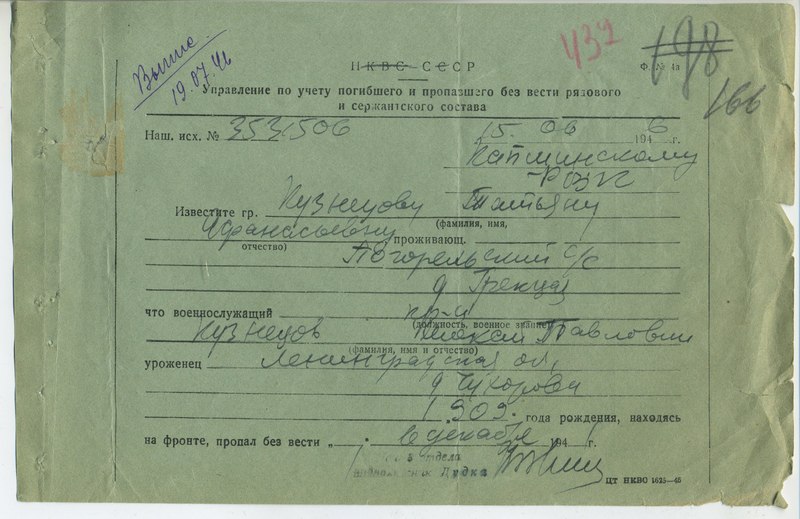 Выпис
19.07.46
437
198
166
НКВС СССР
Ф. № 4а
Управление по учету погибшего и пропавшего без вести рядового
и сержантского состава
Наш. исх. № 353/506
15. 06 1946 г.
Капшинскому
РВК
Известите гр. Кузнецову Татьяну
(фамилия, имя,
Афанасьевну проживающ.
отчество)
с/с
д
что военнослужащий кр-ц
(должность, военное звание)
Кузнецов Павлович
(фамилия, имя и отчество)
уроженец Ленинградская
д
1903. года рождения, находясь
на фронте, пропал без вести „ . декабре 1941 г.
отдела
Дудка
ЦТ НКВО 1625—46